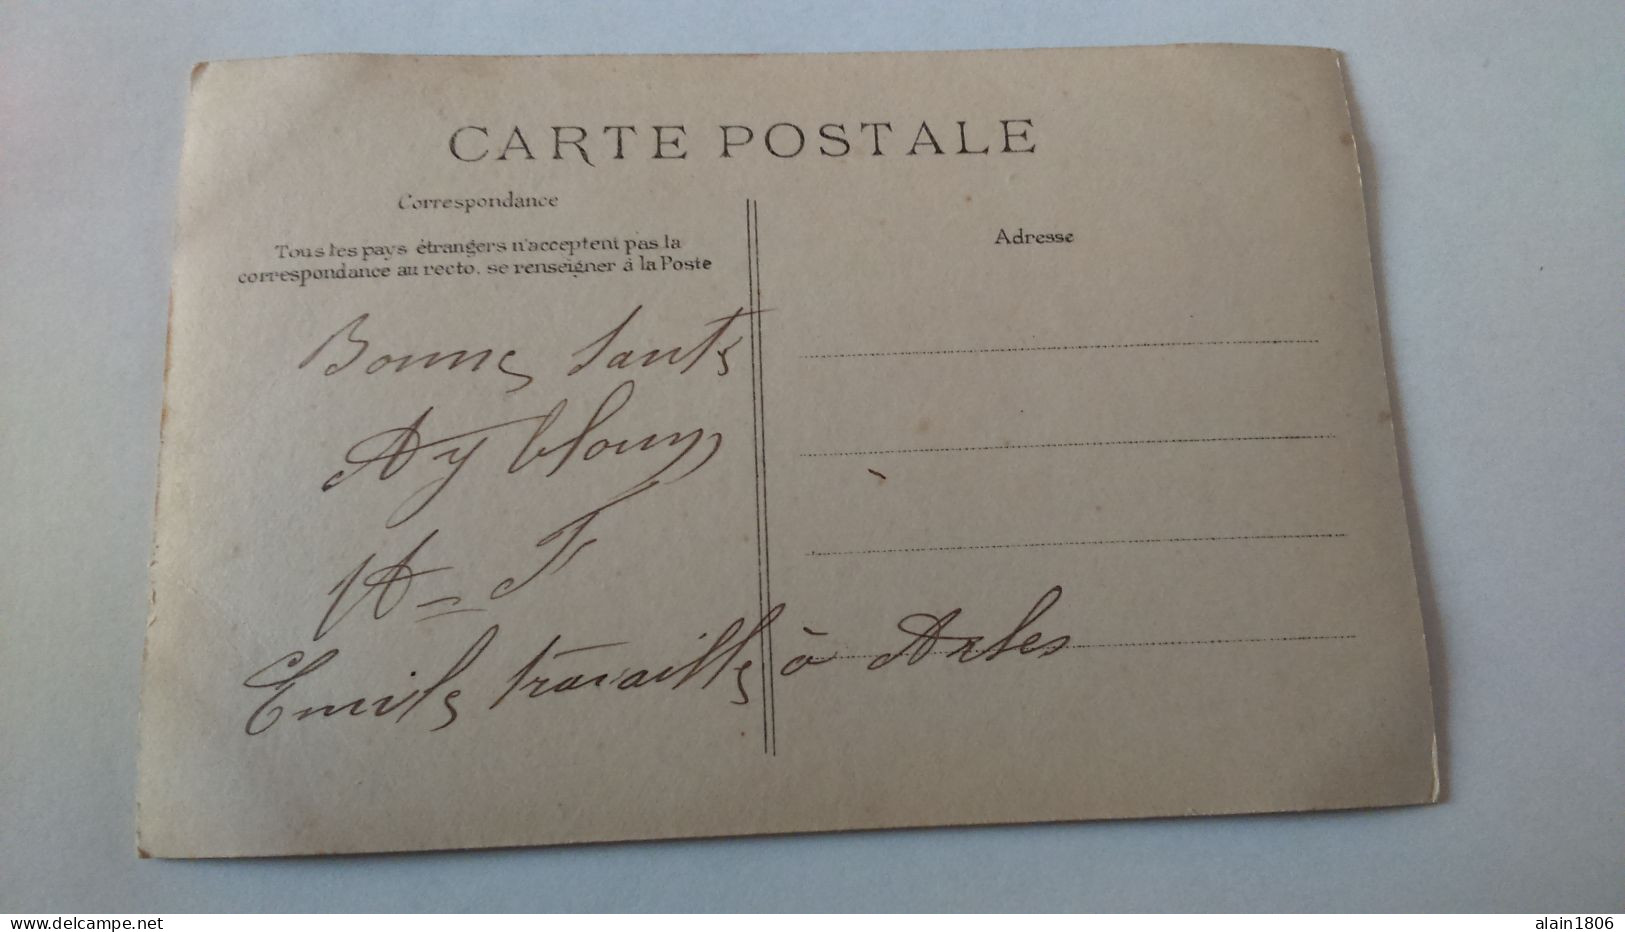 CARTE POSTALE
Correspondance
Tous les pays étrangers n'acceptent pas la
correspondance au recto, se renseigner à la Poste
Adresse
Bonne Santé
F
Emile travaille à Arles
www.delcampe.net
alain1806